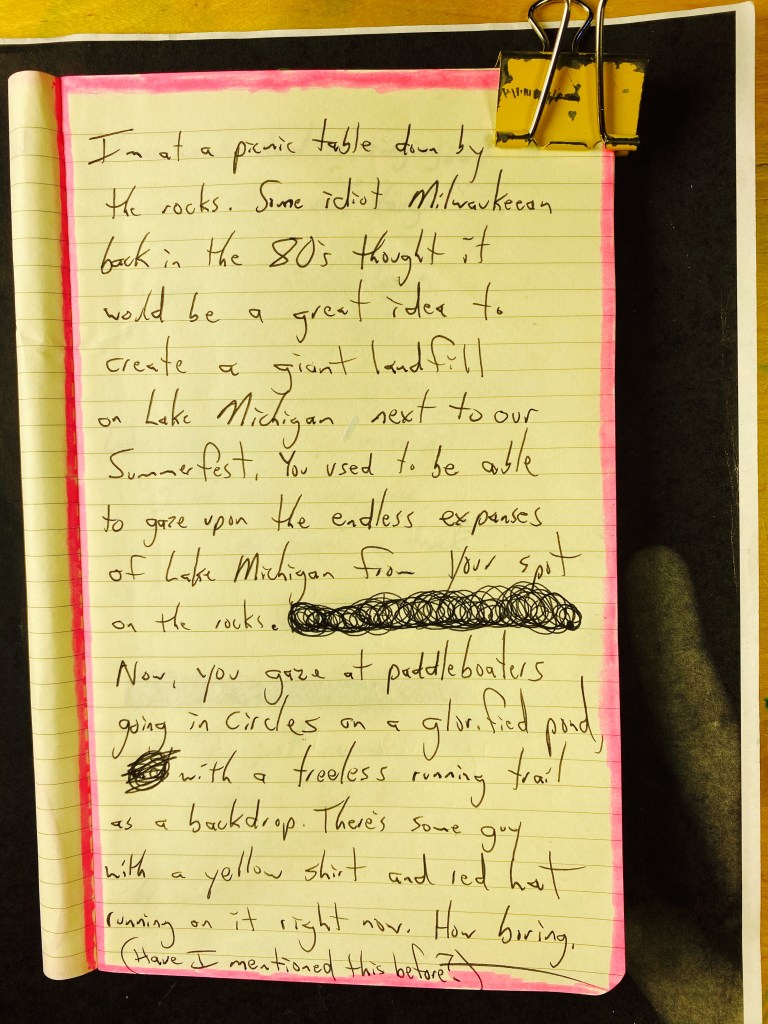 I'm at a picnic table down by
the rocks. Some idiot Milwaukeean
back in the 80's thought it
would be a great idea to
create a giant landfill
on Lake Michigan next to our
Summerfest. You used to be able
to gaze upon the endless expanses
of Lake Michigan from your spot
on the rocks.
Now, you gaze at paddleboaters
going in circles on a glorified pond,
with a treeless running trail
as a backdrop. There's some guy
with a yellow shirt and red hat
running on it right now. How boring.
(Have I mentioned this before?)